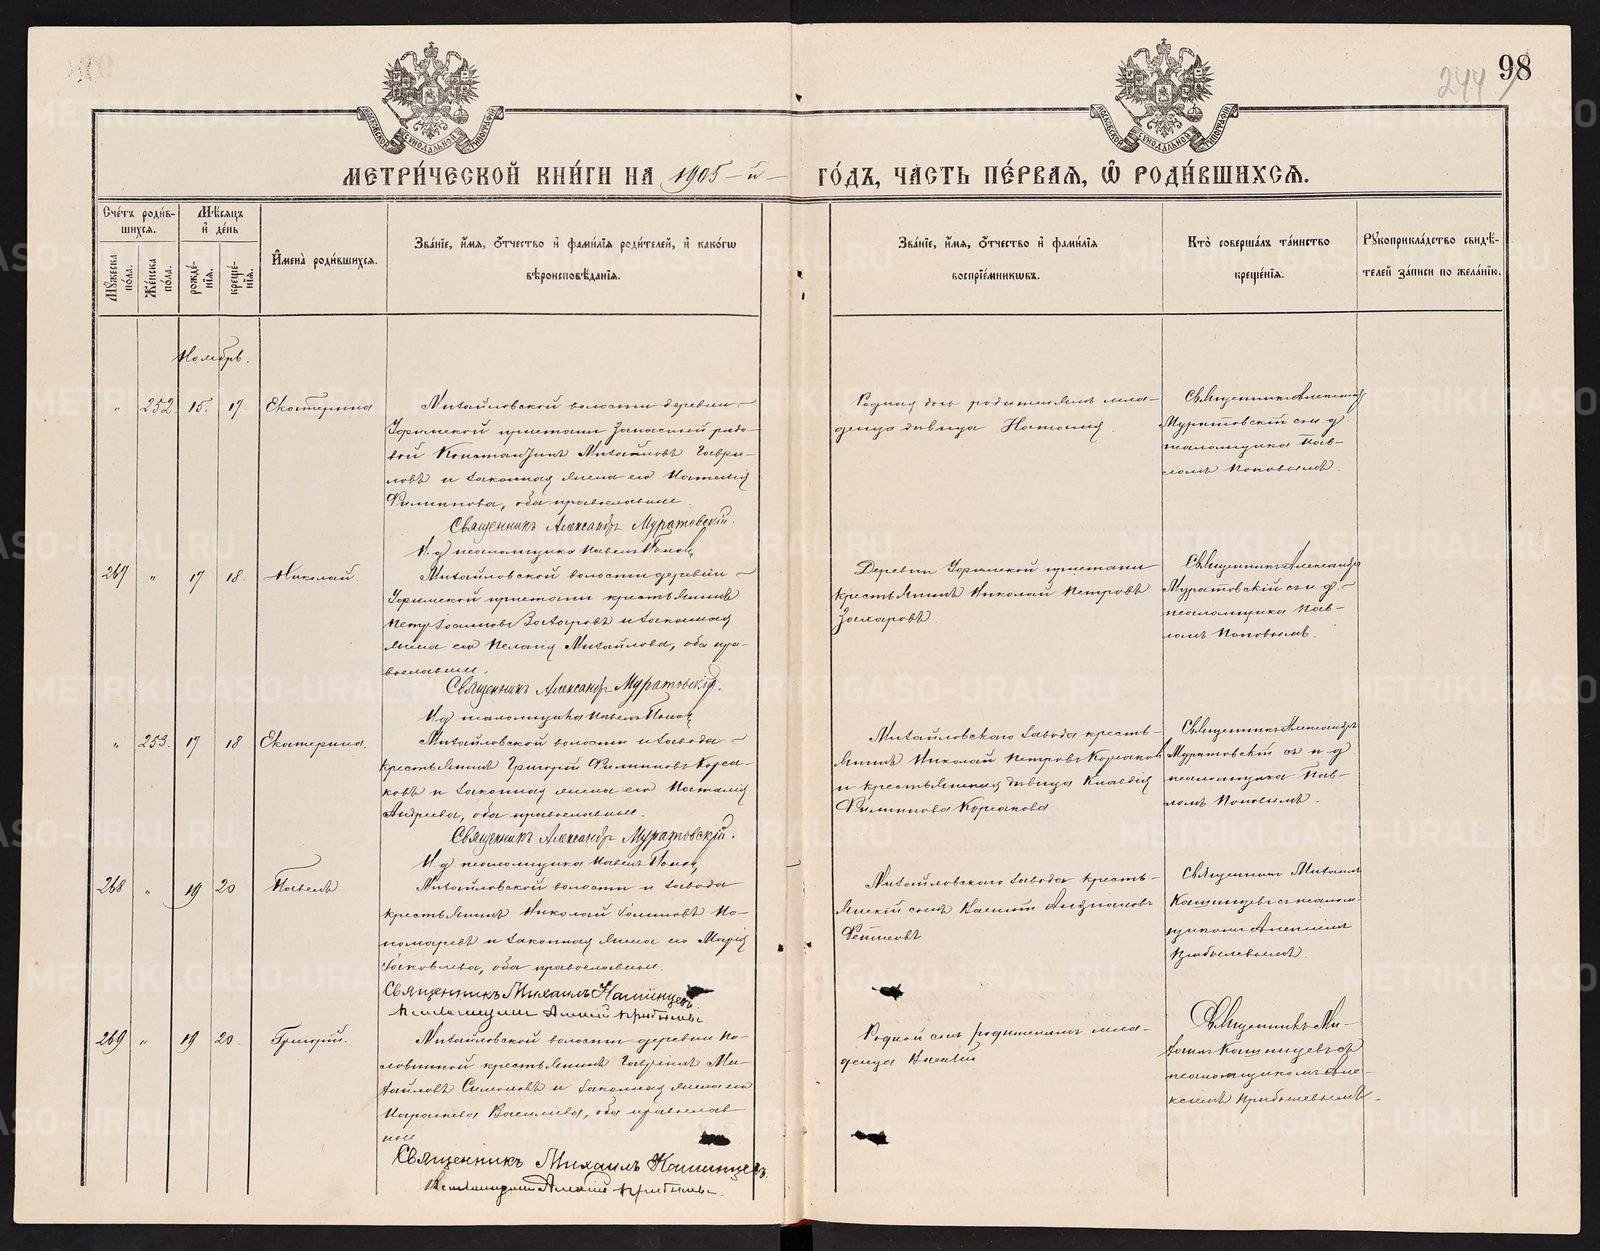 98
244
МЕТРИ́ЧЕСКОЙ КНИ́ГИ НА 1905-й ГО́ДЪ, ЧА́СТЬ ПЕ́РВАЯ, Ѡ РОДИ́ВШИХСЯ.
Сче́тъ роди́в-
шихся.
Мѣ́сяцъ
и де́нь
Му́жеска по́ла.
Же́нска по́ла.
рожде́нїя.
креще́нїя.
Имена̀ роди́вшихся.
Зва́нїе, и́мя, ѻ́тчество и фами́лїя роди́телей, и како́гѡ
вѣроисповѣ́данїя.
Зва́нїе, и́мя, ѻ́тчество и фами́лїя
воспрїе́мникѡвъ.
Кто̀ соверша́лъ та́инство
креще́нїя.
Рꙋкоприкла́дство свидѣ́-
телей за́писи по жела́нїю.
Ноябрь.
" 252 15. 17. Екатерина
Михайловской волости деревни
Уфимской пристани запасный рядо-
вой Константинъ Михайловъ Гаври-
ловъ и законная жена его Наталия
Филиппова, оба православные
Священникъ Александръ Муратовскій.
И. д. псаломщика Павелъ Поповъ
Родная дочь родителямъ мла-
денца дѣвица Наталия.
Священникъ Александръ
Муратовскій съ и. д.
псаломщика Пав-
ломъ Поповымъ.
267 " 17 18. Николай.
Михайловской волости деревни
Уфимской пристани крестьянинъ
Петръ Захаровъ и законная
жена его Пелагия Михайлова, оба пра-
вославные.
Священникъ Александръ Муратовскій.
И. д. псаломщика Павелъ Поповъ
Деревни Уфимской пристани
крестьянинъ Николай Петровъ
Захаровъ
Священникъ Александръ
Муратовскій съ и. д.
псаломщика Пав-
ломъ Поповымъ.
" 253. 17 18 Екатерина.
Михайловской волости и завода
крестьянинъ Григорій Филипповъ Корса-
ковъ и законная жена его Наталия
Андреева, оба православные.
Священникъ Александръ Муратовскій.
И. д. псаломщика Павелъ Поповъ
Михайловскаго завода кресть-
янинъ Николай Петровъ Корсаковъ
и крестьянская дѣвица Клавдия
Филиппова Корсакова
Священникъ Александръ
Муратовскій съ и. д.
псаломщика Пав-
ломъ Поповымъ.
268 " 19 20 Павелъ
Михайловской волости и завода
крестьянинъ Николай По-
номаревъ и законная жена его Марія
Яковлева, оба православные.
Священникъ Михаилъ Кашинцевъ
Псаломщикъ Алексій Прибылевъ
Михайловскаго завода кресть-
янскій сынъ
Священникъ Михаилъ
Кашинцевъ съ псалом-
щикомъ Алексіемъ
Прибылевымъ.
269 " 19 20. Григорій.
Михайловской волости деревни По-
ловинной крестьянинъ Гавріилъ Ми-
хайловъ и законная жена его
Параскева Васильева, оба православ
ные
Священникъ Михаилъ Кашинцевъ.
Псаломщикъ Алексій Прибылевъ.
Родной сынъ родителямъ мла-
денца
Священникъ Ми-
хаилъ Кашинцевъ съ
псаломщикомъ Але-
ксіемъ Прибылевымъ.
METRIKI.GASO-URAL.RU